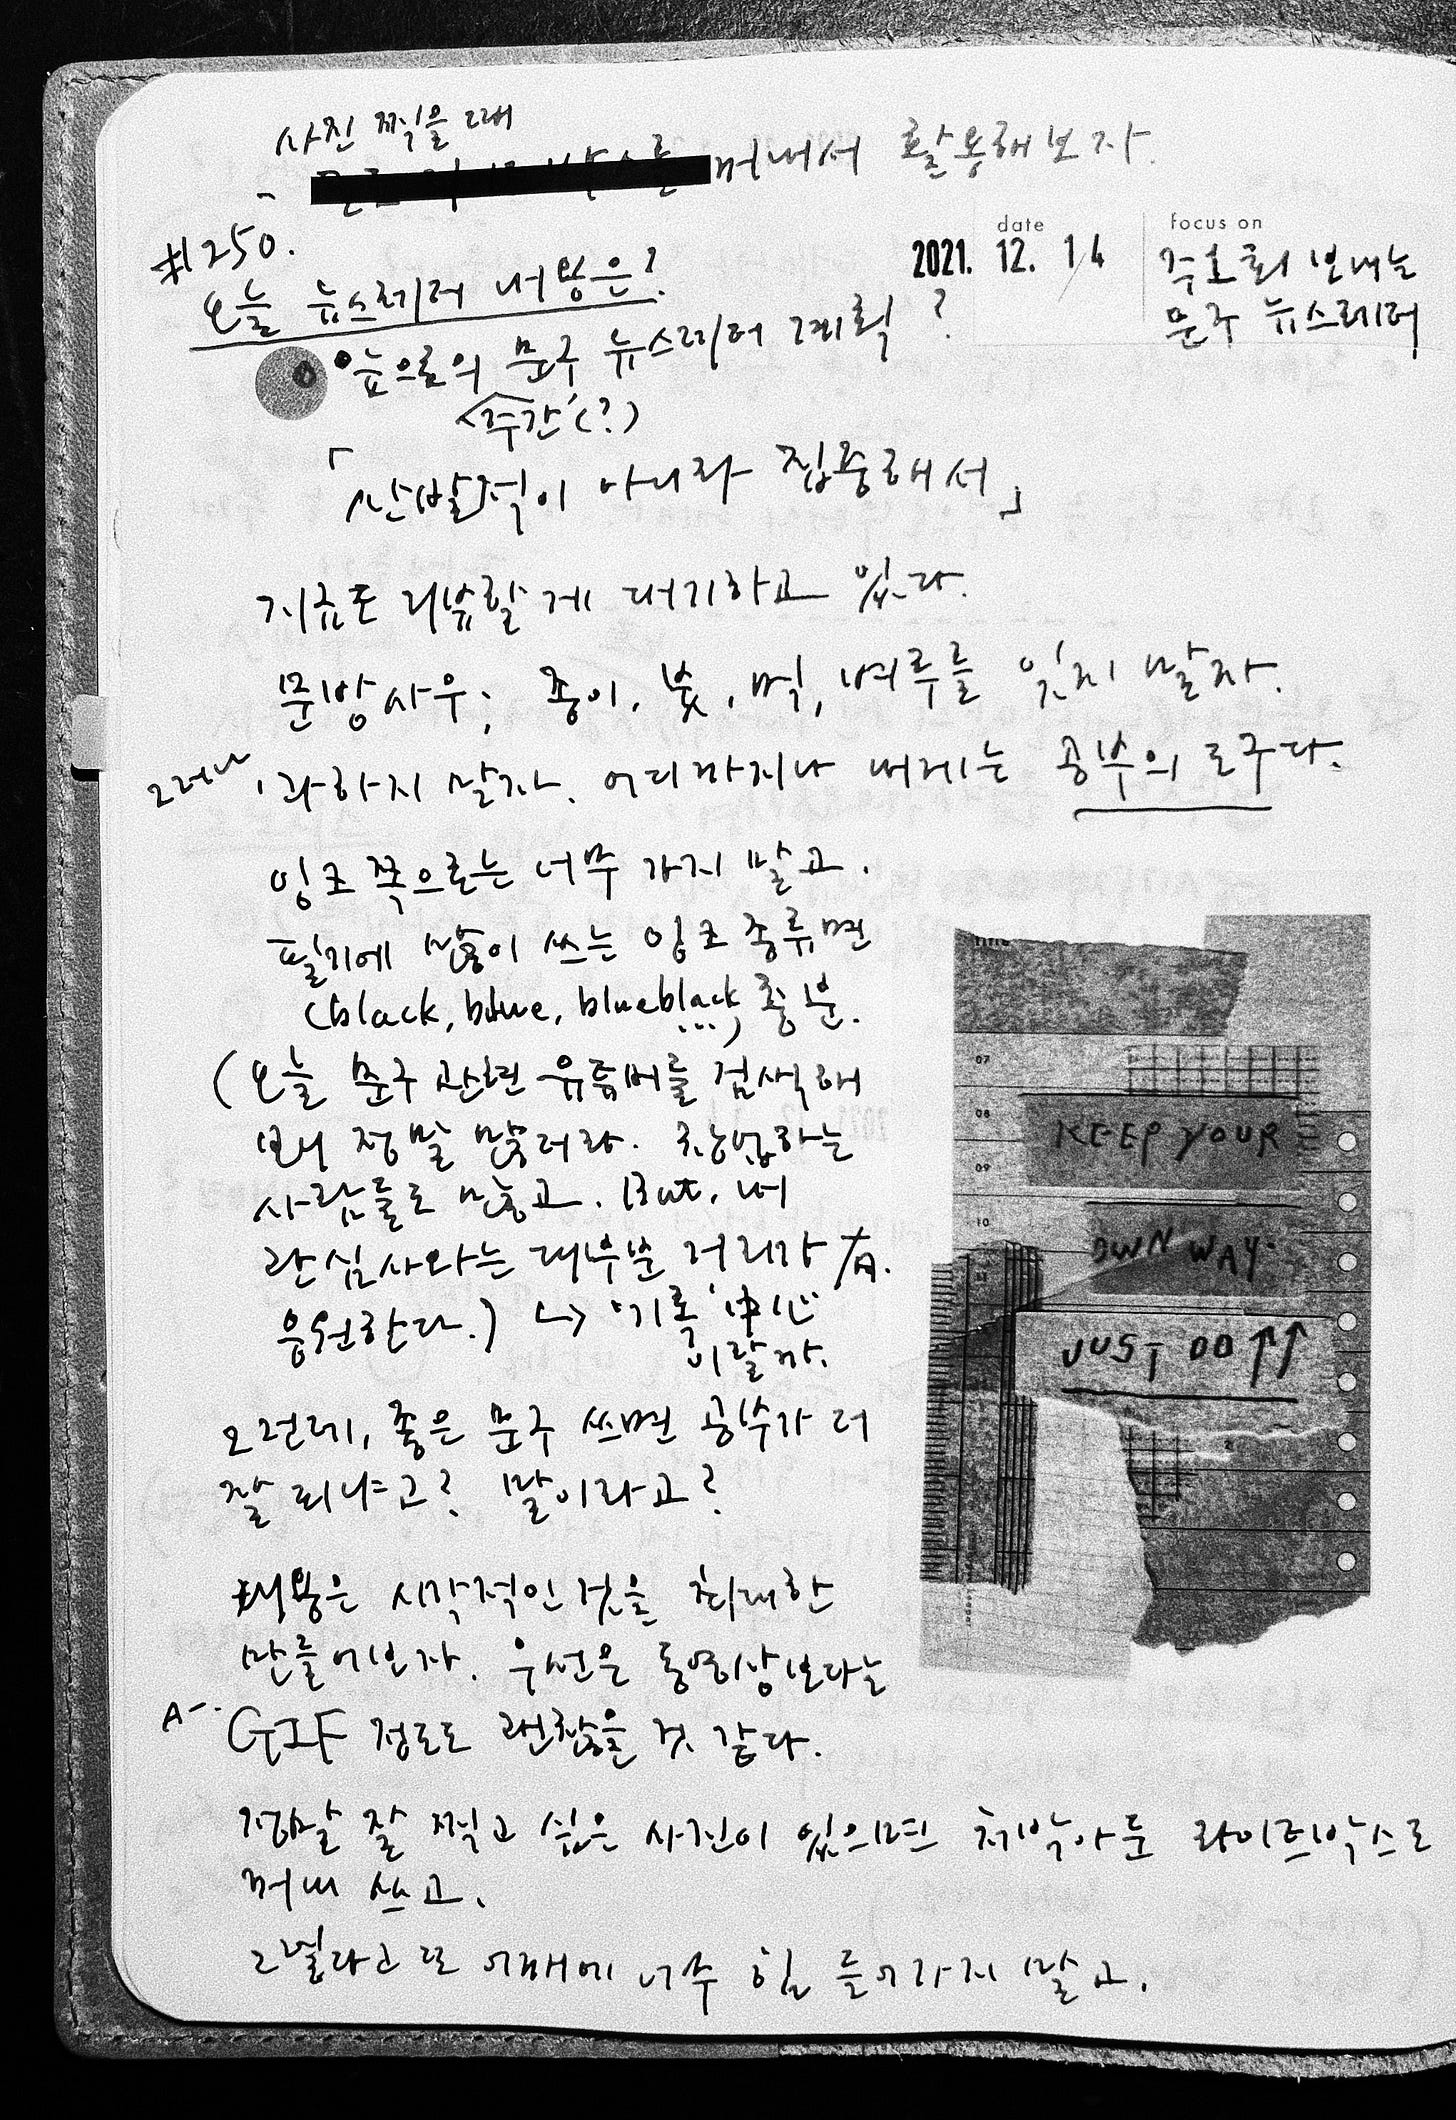 사진 찍을 때
- 꺼내서 활용해보자.
date
2021. 12. 14
focus on
주 1회 보내는
문구 뉴스레터
#250.
오늘 뉴스레터 내용은?
앞으로의 문구 뉴스레터 계획?
<주간'(?)
「산발적이 아니라 집중해서」
지금도 리뷰할 게 대기하고 있다.
문방사우; 종이, 붓, 먹, 벼루를 잊지 말자.
그러나, 과하지 말자. 어디까지나 내게는 공부의 도구다.
잉크 쪽으로는 너무 가지 말고.
필기에 많이 쓰는 잉크 종류면
(black, blue, blueblack, ...) 충분.
(오늘 문구 관련 유튜버를 검색해
보니 정말 많더라. 창업하는
사람들도 많고. But, 내
관심사와는 대부분 거리가 有.
응원한다.) ↳ '기록' 中心
이랄까.
오컨데, 좋은 문구 쓰면 공부가 더
잘 되냐고? 말이라고?
내용은 시각적인 것을 최대한
만들어보자. 우선은 동영상보다는
GIF 정도도 괜찮을 것 같다.
정말 잘 찍고 싶은 사진이 있으면 처박아둔 라이트박스도
꺼내 쓰고.
그렇다고 또 어깨에 너무 힘 들어가지 말고.
07
08
09
10
11
KEEP YOUR
OWN WAY.
JUST DO ↑↑